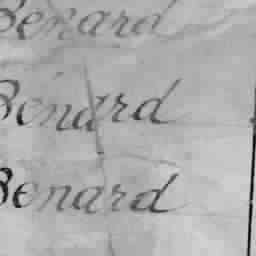 Benard
Benard
Benard